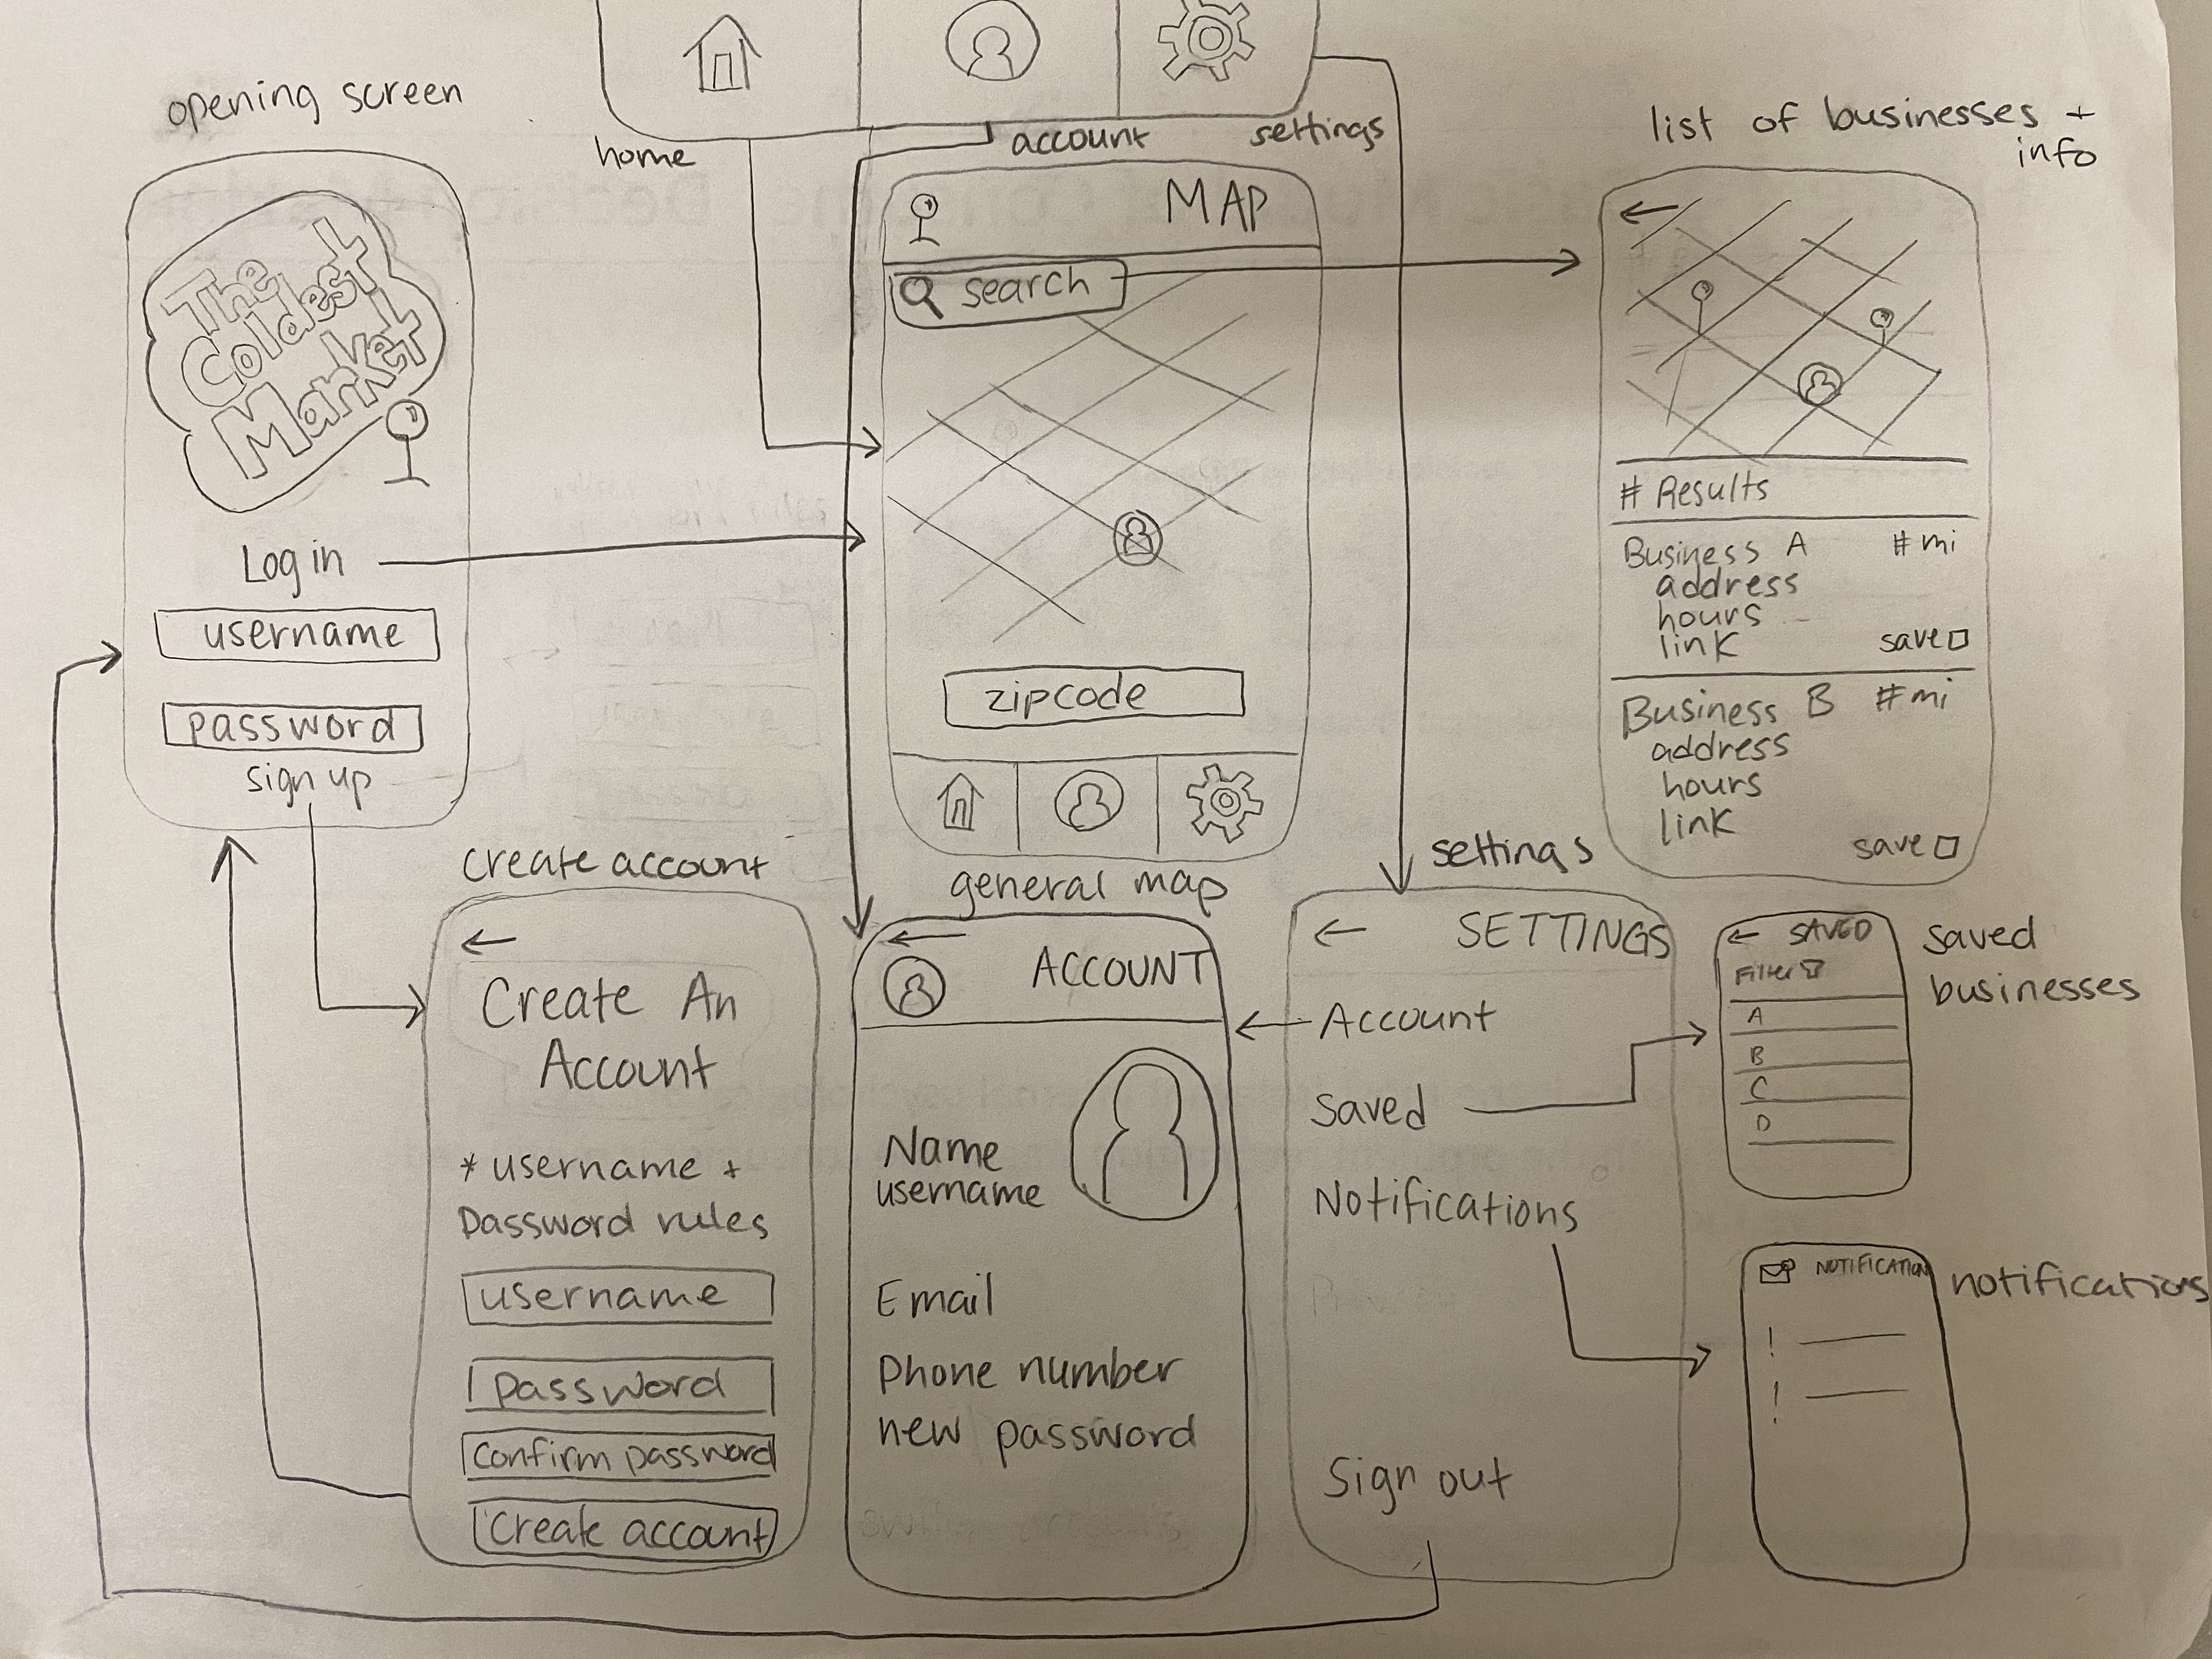 opening screen
The
Coldest
Market
Log in
username
password
sign up
home
account
settings
MAP
search
zipcode
general map
list of businesses +
info
# Results
Business A #mi
address
hours
link
save
Business B #mi
address
hours
link
save
create account
Create An
Account
* username +
Password rules
username
password
Confirm password
Create account
ACCOUNT
Name
username
Email
Phone number
new password
settings
SETTINGS
Account
Saved
Notifications
Sign out
SAVED
Filter
A
B
C
D
saved
businesses
NOTIFICATION
!
!
notifications